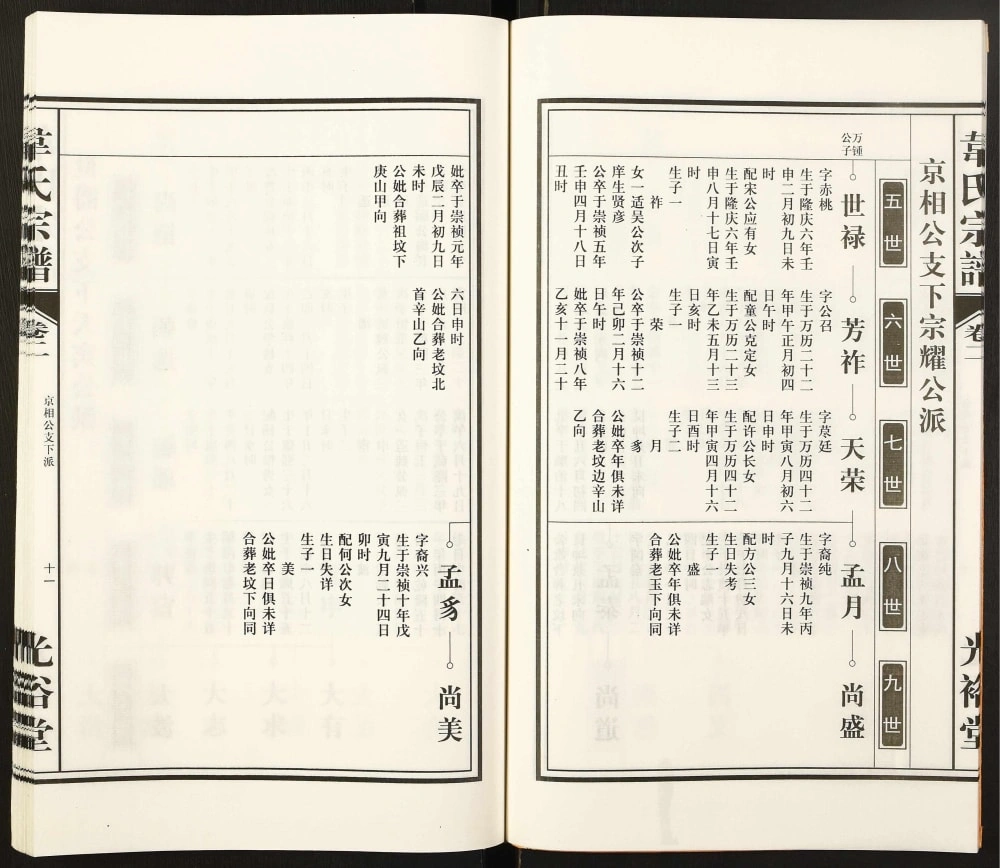 韋氏宗譜
卷二
光裕堂
京相公支下宗耀公派
五世
六世
七世
八世
九世
万锺
公子
世禄
字赤桃
生于隆庆六年壬
申二月初九日未
时
配宋公应有女
生于隆庆六年壬
申八月十七日寅
时
生子一
祚
女一适吴公次子
庠生贤彦
公卒于崇祯五年
壬申四月十八日
丑时
芳祚
字公召
生于万历二十二
年甲午正月初四
日午时
配童公克定女
生于万历二十三
年乙未五月十三
日亥时
生子一
荣
公卒于崇祯十二
年己卯二月十六
日午时
妣卒于崇祯八年
乙亥十一月二十
天荣
生于万历四十二
年甲寅八月初六
日申时
配许公长女
生于万历四十二
年甲寅四月十六
日酉时
生子二
月
豸
公妣卒年俱未详
合葬老坟边辛山
乙向
孟月
字裔纯
生于崇祯九年丙
子九月十六日未
时
配方公三女
生日失考
生子一
盛
公妣卒年俱未详
合葬老玉下向同
尚盛
妣卒于崇祯元年
戊辰二月初九日
未时
公妣合葬祖坟下
庚山甲向
六日申时
公妣合葬老坟北
首辛山乙向
孟豸
字裔兴
生于崇祯十年戊
寅九月二十四日
卯时
配何公次女
生日失详
生子一
美
公妣卒日俱未详
合葬老坟下向同
尚美
韋氏宗譜
卷二
京相公支下派
十一
光裕堂